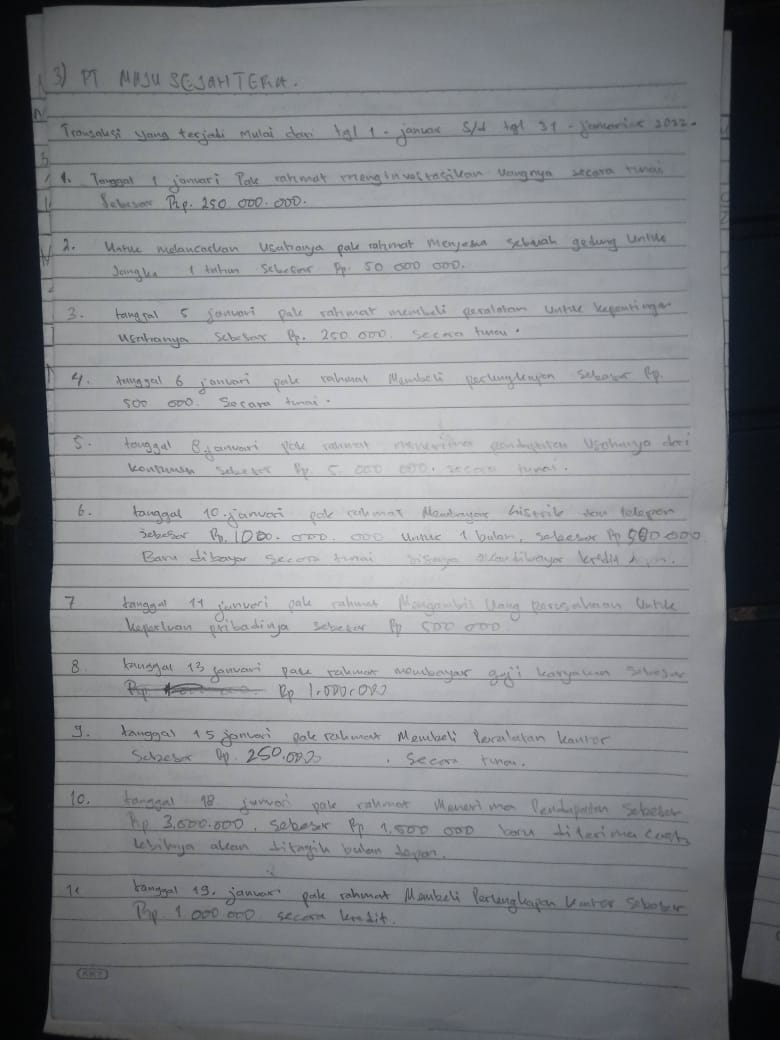 3) PT MAJU SEJAHTERA.
Transaksi yang terjadi mulai dari tgl 1 - januar s/d tgl 31 - januarier 2022.
1. Tanggal 1 januari Pak rahmat menginvestasikan uangnya secara tunai
Sebesar Rp. 250 000.000.
2. Untuk melancarkan usahanya pak rahmat menyewa sebuah gedung untuk
Jangka 1 tahun sebesar Rp. 50 000 000.
3. tanggal 5 januari pak rahmat membeli peralatan untuk kepentingan
usahanya sebesar Rp. 250.000. secara tunai.
4. tanggal 6 januari pak rahmat Membeli perlengkapan sebesar Rp.
500 000. Secara tunai.
5. tanggal 8 januari pak rahmat menerima pendapatan usahanya dari
konsumen sebesar Rp. 5.000 000. secara tunai.
6. tanggal 10 januari pak rahmat Membayar listrik dan telepon
sebesar Rp. 1000.000.000 untuk 1 bulan, sebesar Rp 500 000
Baru dibayar secara tunai sisanya akan dibayar kredit
7 tanggal 11 januari pak rahmat Mengambil uang perusahaan untuk
keperluan pribadinya sebesar Rp 500 000
8. tanggal 13 januari pak rahmat membayar gaji karyawan sebesar
Rp Rp 1.000.000
9. tanggal 15 januari pak rahmat Membeli Peralatan kantor
Sebesar Rp. 250.000 . Secara tunai.
10. tanggal 18 januari pak rahmat Menerima Pendapatan sebesar
Rp 3.000.000, sebesar Rp 1,500 000 baru diterima cash
lebihnya akan ditagih bulan depan.
11 tanggal 19. januari pak rahmat Membeli Perlengkapan kantor sebesar
Rp 1 000.000 secara kredit.